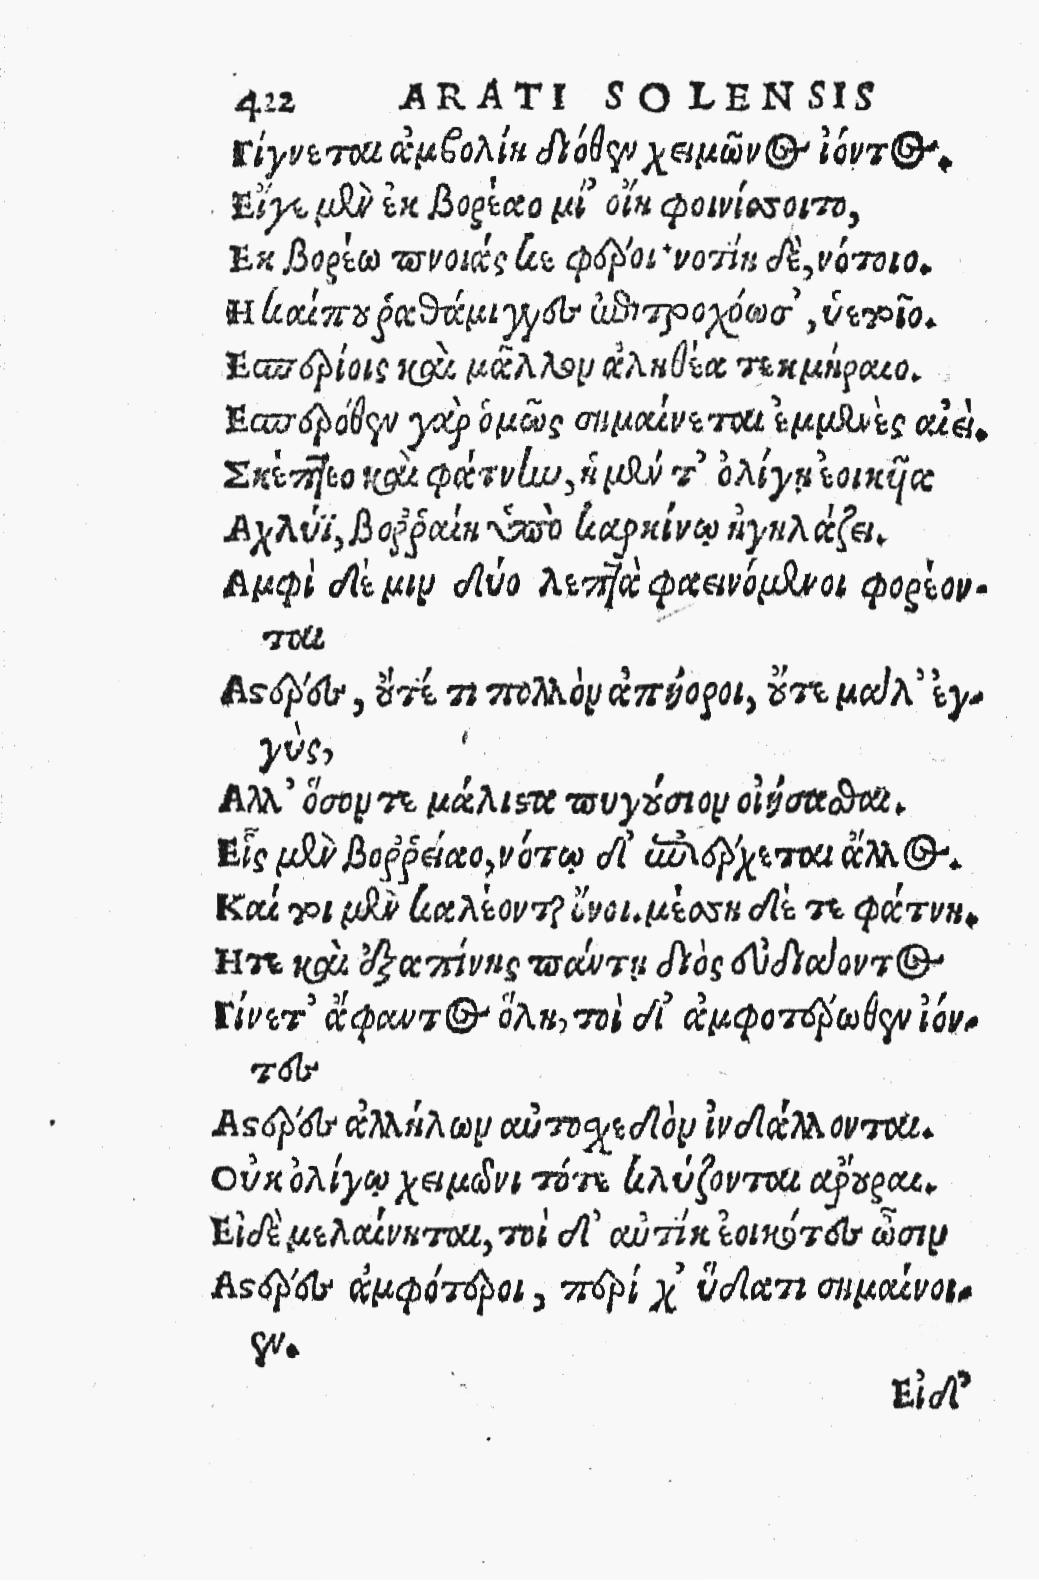 422 ARATI SOLENSIS
Γίγνεται ἀμβολίη διόθεν χειμῶνος ἰόντος.
Εἴγε μὲν ἐκ βορέαο μί᾽ οἴη φοινίσσοιτο,
Εκ βορέω πνοιάς κε φέροι· νοτίη δὲ, νότοιο.
Η καί που ῥαθάμιγγες ἐπιτροχόωσ᾽, ὑετοῖο.
Εσπερίοις καὶ μᾶλλον ἀληθέα τεκμήραιο.
Εσπερόθεν γὰρ ὁμῶς σημαίνεται ἐμμενὲς αἰεὶ.
Σκέπτεο καὶ φάτνην, ἡ μέν τ᾽ ὀλίγῃ ἐοικῆα
Αχλύϊ, βοῤῥαίη ὑπὸ καρκίνῳ ἡγηλάζει.
Αμφὶ δὲ μιν δύο λεπτὰ φαεινόμενοι φορέον-
ται
Αστέρες, οὔτέ τι πολλὸν ἀπήοροι, οὔτε μάλ᾽ ἐγ-
γὺς,
Αλλ᾽ ὅσον τε μάλιστα πυγούσιον οἰήσασθαι.
Εἷς μὲν βοῤῥείαο, νότῳ δ᾽ ἐπέρχεται ἄλλος.
Καί τοι μὲν καλέονται ὄνοι. μέσση δέ τε φάτνη.
Ητε καὶ ἐξαπίνης πάντῃ διὸς εὐδιάοντος
Γίνετ᾽ ἄφαντος ὅλη, τοὶ δ᾽ ἀμφοτέρωθεν ἰόν-
τες
Αστέρες ἀλλήλων αὐτοσχεδὸν ἰνδάλλονται.
Οὐκ ὀλίγῳ χειμῶνι τότε κλύζονται ἀρ́ουραι.
Εἰ δὲ μελαίνηται, τοὶ δ᾽ αὐτίκ ἐοικότες ὦσιν
Αστέρες ἀμφότεροι, περί χ᾽ ὕδατι σημαίνοι-
εν.
Εἰ δ᾽